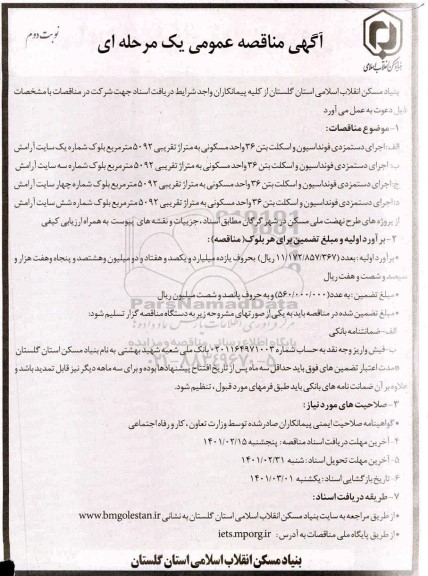 نوبت دوم
آگهی مناقصه عمومی یک مرحله ای
بنیاد مسکن انقلاب اسلامی
بنیاد مسکن انقلاب اسلامی استان گلستان از کلیه پیمانکاران واجد شرایط دریافت اسناد جهت شرکت در مناقصات با مشخصات
ذیل دعوت به عمل می آورد
۱- موضوع مناقصات:
الف:اجرای دستمزدی فونداسیون و اسکلت بتن ۳۶ واحد مسکونی به متراژ تقریبی ۵۰۹۲ مترمربع بلوک شماره یک سایت آرامش
ب: اجرای دستمزدی فونداسیون و اسکلت بتن ۳۶ واحد مسکونی به متراژ تقریبی ۵۰۹۲ مترمربع بلوک شماره سه سایت آرامش
ج:اجرای دستمزدی فونداسیون و اسکلت بتن ۳۶ واحد مسکونی به متراژ تقریبی ۵۰۹۲ مترمربع بلوک شماره چهار سایت آرامش
د:اجرای دستمزدی فونداسیون و اسکلت بتن ۳۶ واحد مسکونی به متراژ تقریبی ۵۰۹۲ مترمربع بلوک شماره شش سایت آرامش
از پروژه های طرح نهضت ملی مسکن در شهر گرگان مطابق اسناد ،جزییات و نقشه های پیوست به همراه ارزیابی کیفی
۲- بر آورد اولیه و مبلغ تضمین برای هر بلوک( مناقصه):
•برآورد اولیه :بعدد (۱۱/۱۷۲/۸۵۷/۳۶۷ ریال) بحروف یازده میلیارد و یکصد و هفتاد و دو میلیون وهشتصد و پنجاه وهفت هزار و
سیصد و شصت و هفت ریال
•مبلغ تضمین :به عدد(۵۶۰/۰۰۰/۰۰۰) و به حروف پانصد و شصت میلیون ریال
•مبلغ تضمین شده در مناقصه باید به یکی از صورتهای مشروحه زیر به دستگاه مناقصه گزار تسلیم شود:
الف-ضمانتنامه بانکی
ب-فیش واریز وجه نقد به حساب شماره ۰۲۰۱۱۶۴۹۷۱۰۰۳بانک ملی شعبه شهید بهشتی به نام بنیاد مسکن استان گلستان
•مدت اعتبار تضمین های فوق باید حداقل سه ماه پس از تاریخ افتتاح پیشنهادها بوده و برای سه ماهه دیگر نیز قابل تمدید باشد و
علاوه بر آن ضمانت نامه های بانکی باید طبق فرمهای مورد قبول ، تنظیم شود.
۳- صلاحیت های مورد نیاز :
•گواهینامه صلاحیت ایمنی پیمانکاران صادر شده توسط وزارت تعاون ، کار و رفاه اجتماعی
۴- آخرین مهلت دریافت اسناد مناقصه: پنجشنبه ۱۴۰۱/۰۲/۱۵
۵- آخرین مهلت تحویل اسناد : شنبه ۱۴۰۱/۰۲/۳۱
۶- تاریخ بازگشایی اسناد: یکشنبه ۱۴۰۱/۰۳/۰۱
۷- طریقه دریافت اسناد:
•از طریق مراجعه به سایت بنیاد مسکن انقلاب اسلامی استان گلستان به نشانی www.bmgolestan.ir
•از طریق پایگاه ملی مناقصات به آدرس: iets.mporg.ir
بنیاد مسکن انقلاب اسلامی استان گلستان
ParsNamadData
پایگاه اطلاع رسانی مناقصه و مزایده